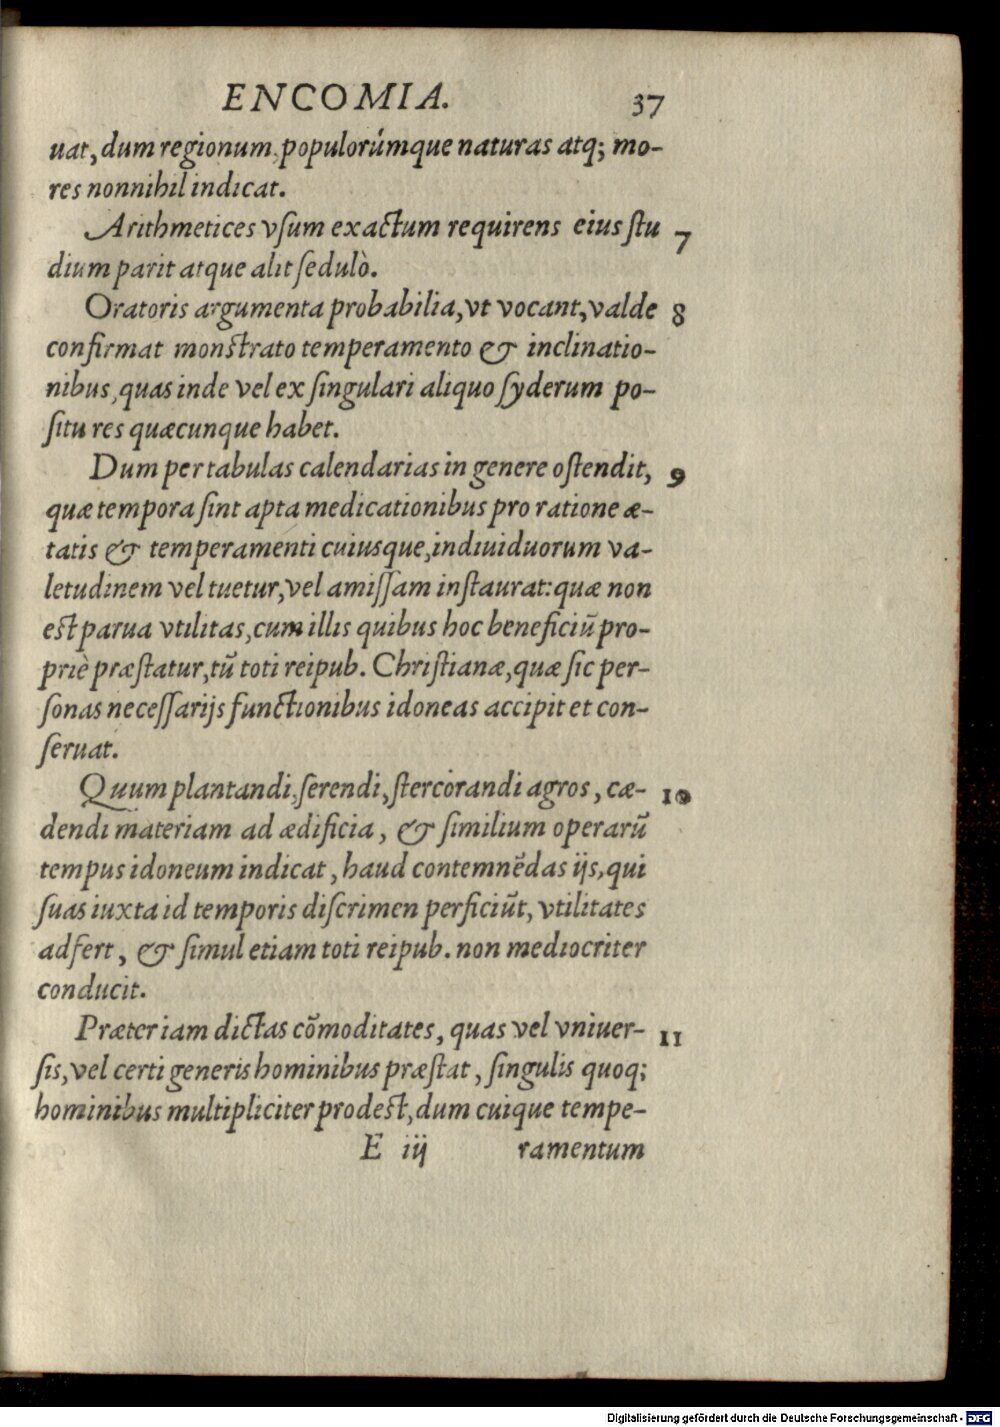 ENCOMIA. 37
uat, dum regionum, populorúmque naturas atq; mo-
res nonnihil indicat.
Arithmetices vſum exactum requirens eius ſtu 7
dium parit atque alit ſedulò.
Oratoris argumenta probabilia, vt vocant, valde 8
confirmat monſtrato temperamento & inclinatio-
nibus, quas inde vel ex ſingulari aliquo ſyderum po-
ſitu res quæcunque habet.
Dum per tabulas calendarias in genere oſtendit, 9
quæ tempora ſint apta medicationibus pro ratione æ-
tatis & temperamenti cuiusque, indiuiduorum va-
letudinem vel tuetur, vel amiſſam inſtaurat: quæ non
eſt parua vtilitas, cum illis quibus hoc beneficiũ pro-
priè præſtatur, tũ toti reipub. Chriſtianæ, quæ ſic per-
ſonas neceſſarijs functionibus idoneas accipit et con-
ſeruat.
Quum plantandi, ſerendi, ſtercorandi agros, cæ- 10
dendi materiam ad ædificia, & ſimilium operarũ
tempus idoneum indicat, haud contemnẽdas ijs, qui
ſuas iuxta id temporis diſcrimen perficiũt, vtilitates
adfert, & ſimul etiam toti reipub. non mediocriter
conducit.
Præter iam dictas cõmoditates, quas vel vniuer- 11
ſis, vel certi generis hominibus præſtat, ſingulis quoq;
hominibus multipliciter prodeſt, dum cuique tempe-
E iij ramentum
Digitalisierung gefördert durch die Deutsche Forschungsgemeinschaft - DFG